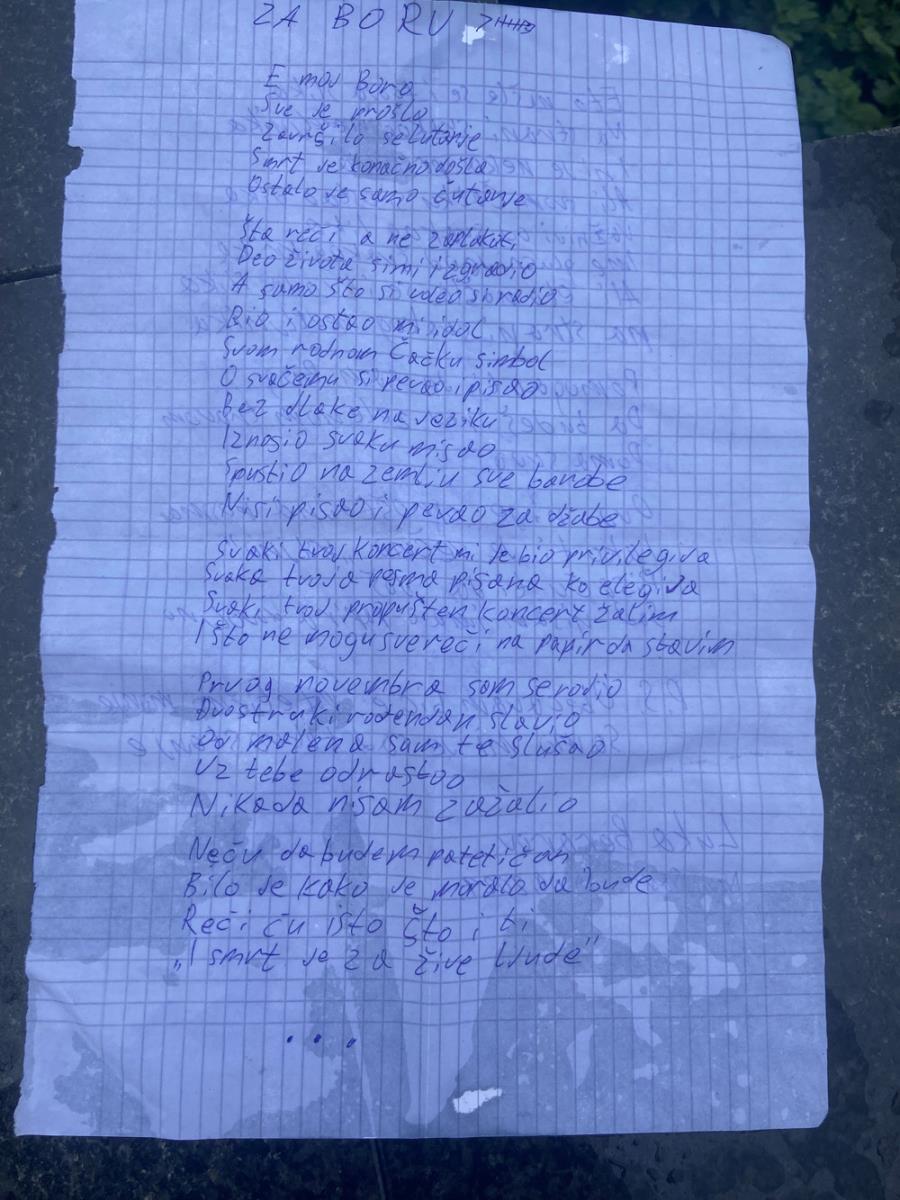 ZA BORU
E moj Boro
Sve je prošlo
Završilo se lutanje
Smrt je konačno došla
Ostalo je samo ćutanje
Šta reći a ne zaplakati
Deo života si mi izgradio
A samo što si voleo si radio
Bio i ostao mi idol
Svom rodnom Čačku simbol
O svačemu si pevao i pisao
Bez dlake na jeziku
Iznosio svaku misao
Spustio na zemlju sve barabe
Nisi pisao i pevao za džabe
Svaki tvoj koncert mi je bio privilegija
Svaka tvoja pesma pisana ko elegija
Svaki tvoj propušten koncert žalim
I što ne mogu sve reči na papir da stavim
Prvog novembra sam se rodio
Dvostruki rođendan slavio
Od malena sam te slušao
Uz tebe odrastao
Nikada nisam zažalio
Neću da budem patetičan
Bilo je kako je moralo da bude
Reći ću isto što i ti
„I smrt je za žive ljude"
...